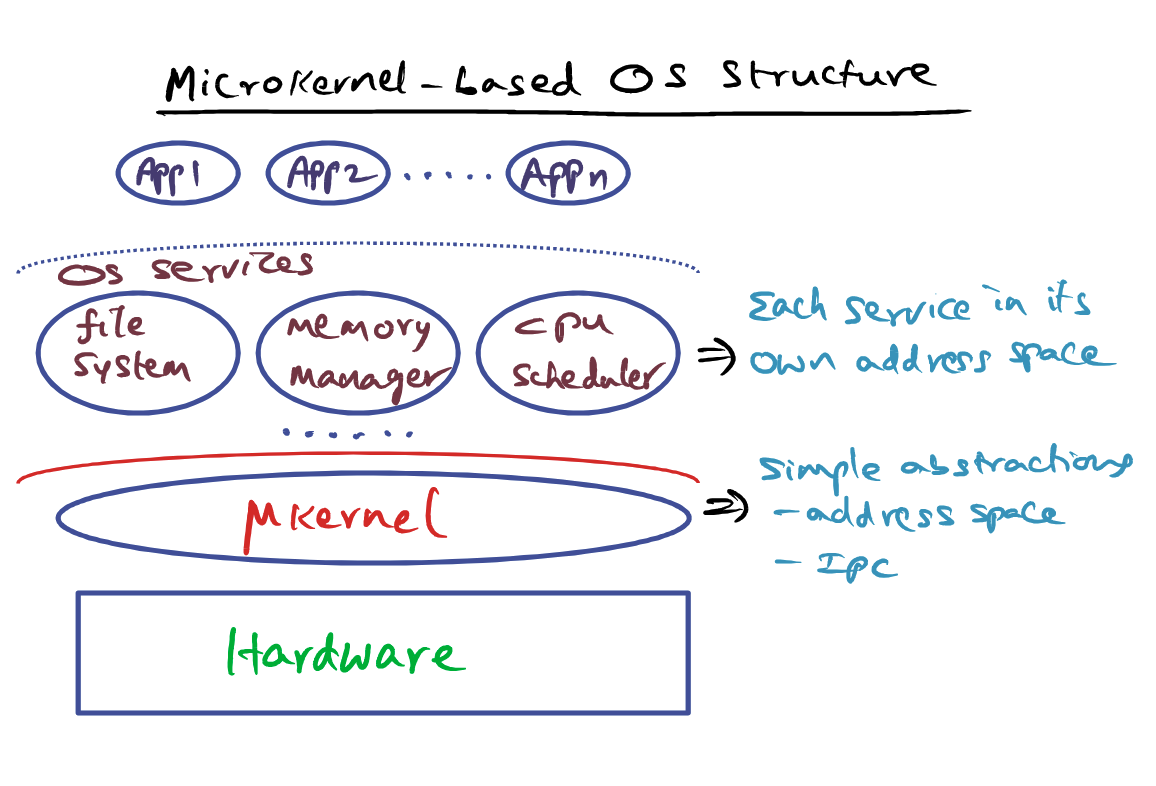 Microkernel-based OS Structure
App1 App2 ...... Appn
OS services
file
system
memory
manager
cpu
scheduler
⇒ Each service in its
own address space
......
μkernel
⇒ Simple abstractions
- address space
- IPC
Hardware